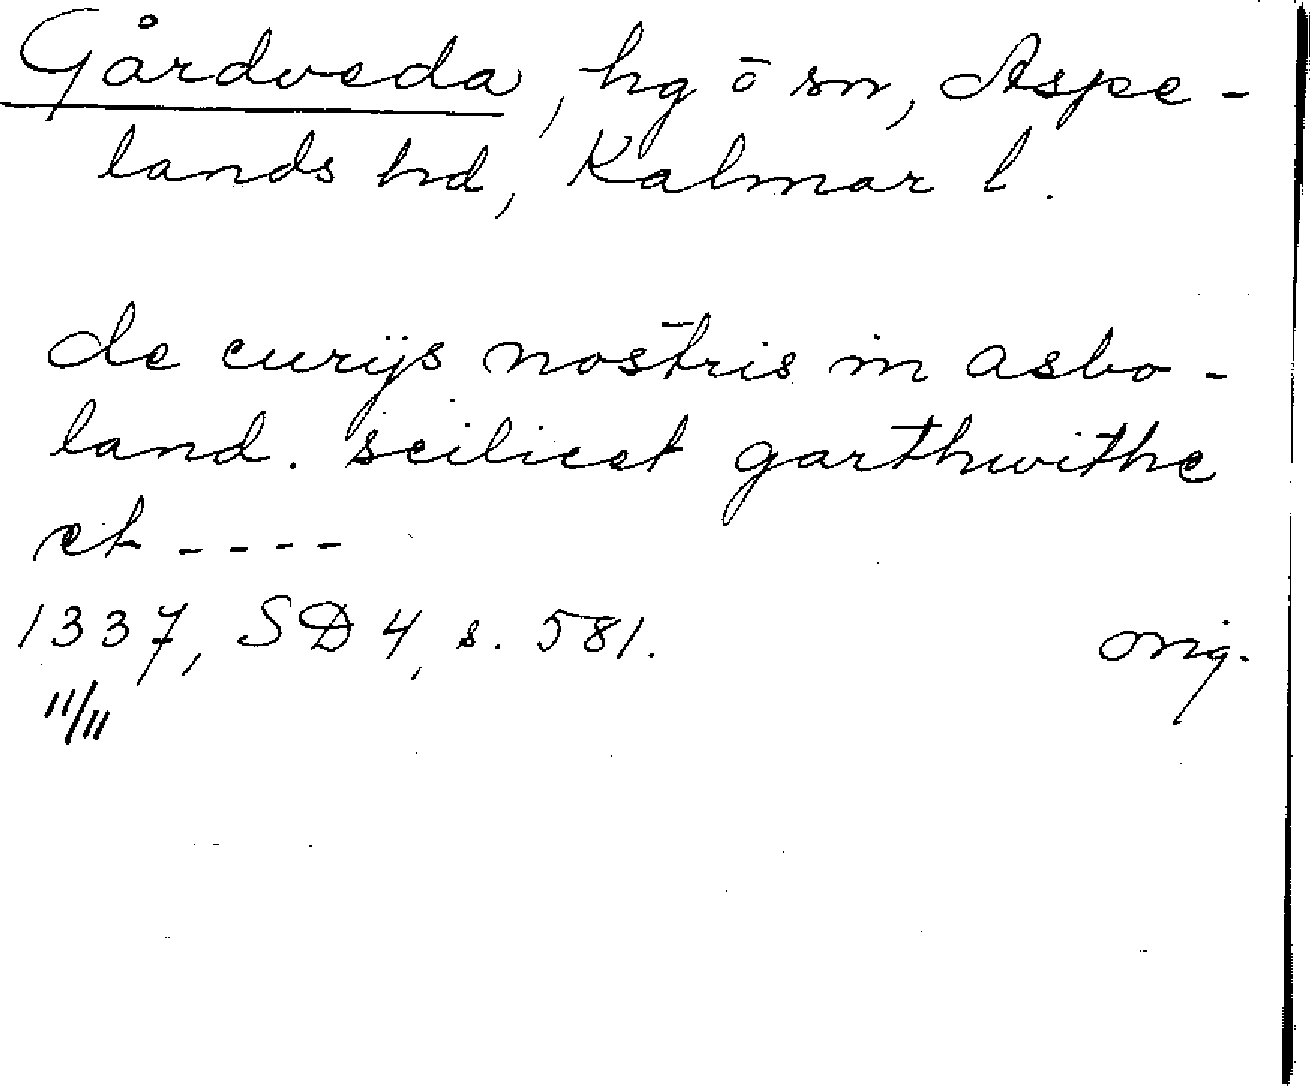 Gårdveda, hg ō sn, Aspe-
lands hd, Kalmar l.
de curijs nostris in asbo-
land. sciliest garthwithe
et ----
1337, SD 4, s. 581. orig.
11/11